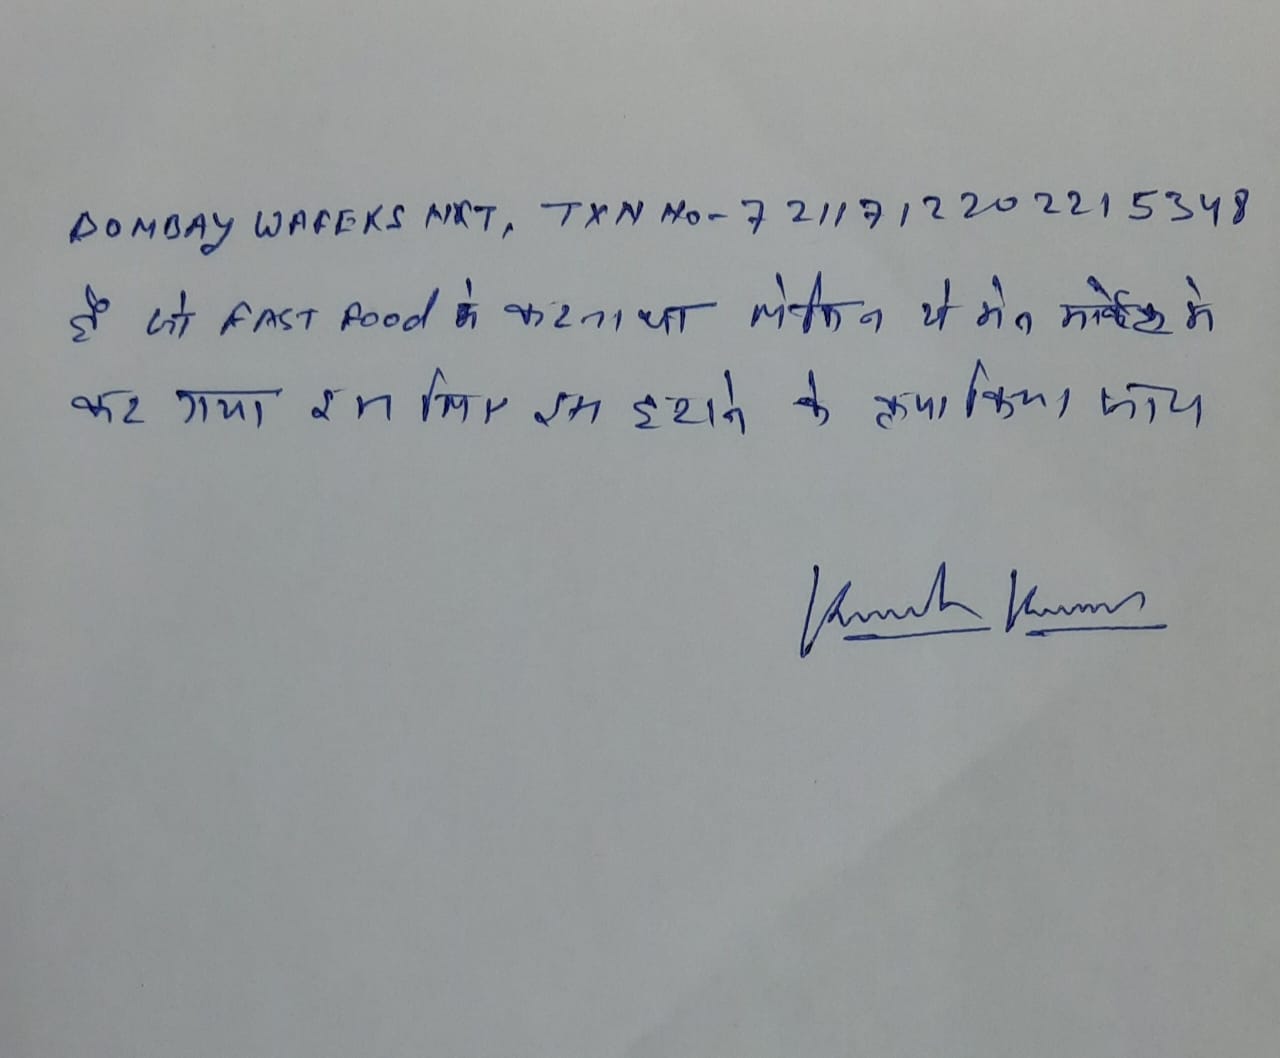 BOMBAY WAFERS MKT, TXN No-7211712202215348
है जो FAST FOOD मे कटना था लेकिन ये मेन मार्केट मे
कट गया इस लिए इस हटाने के कृपा किया जाय
Kumar